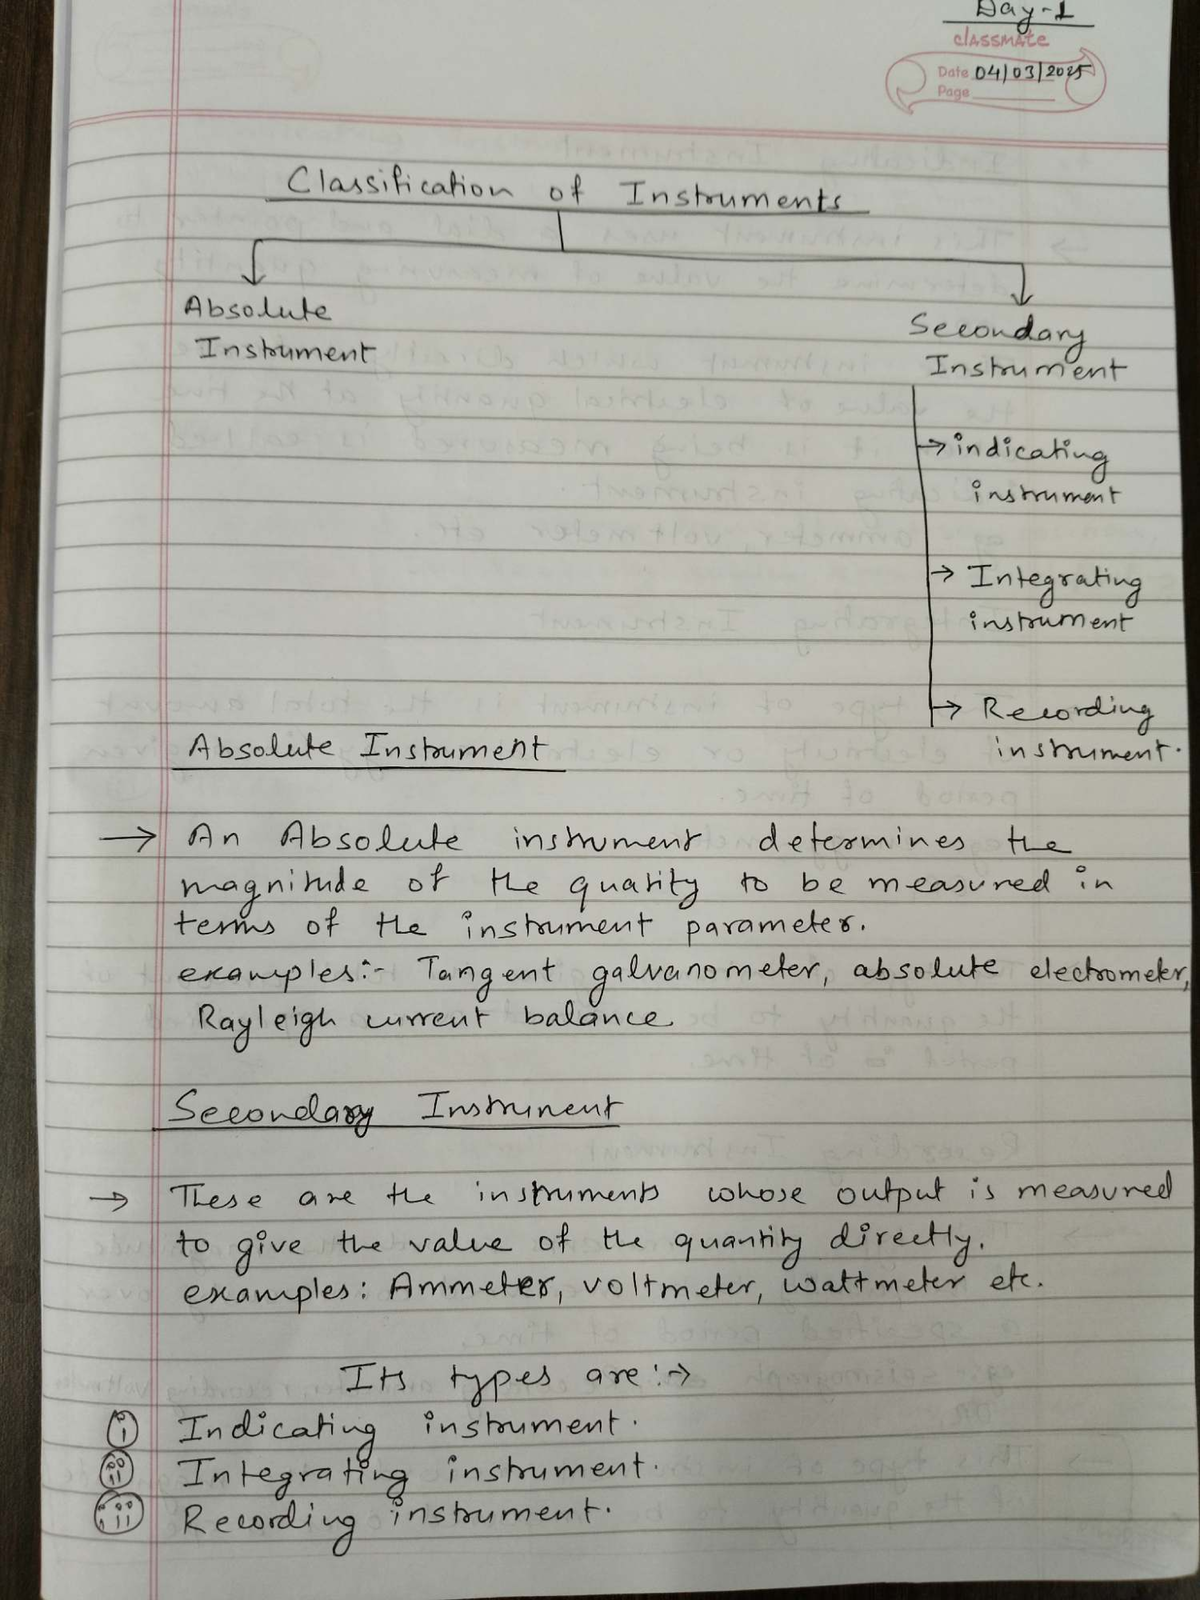 Day-1
classmate
Date 04/03/2025
Page
Classification of Instruments
Absolute
Instrument
Secondary
Instrument
→ indicating
instrument
→ Integrating
instrument
→ Recording
instrument.
Absolute Instrument
→ An Absolute instrument determines the
magnitude of the quatity to be measured in
terms of the instrument parameter.
examples:- Tangent galvanometer, absolute electrometer,
Rayleigh current balance.
Secondary Instrument
→ These are the instruments whose output is measured
to give the value of the quantity directly.
examples: Ammeter, voltmeter, wattmeter etc.
Its types are:→
(i) Indicating instrument.
(ii) Integrating instrument.
(iii) Recording instrument.